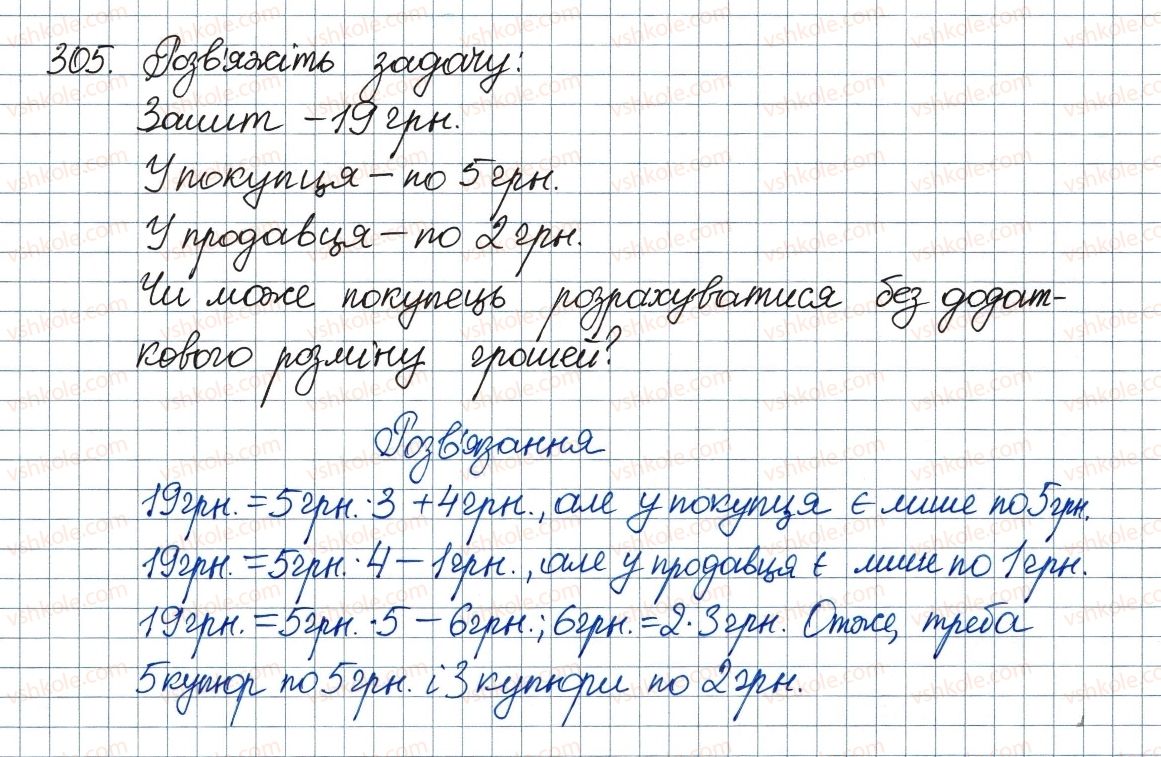 305. Розв'яжіть задачу:
Зошит – 19 грн.
У покупця – по 5 грн.
У продавця – по 2 грн.
Чи може покупець розрахуватися без додат-
кового розміну грошей?
Розв'язання
19 грн. = 5 грн. · 3 + 4 грн., але у покупця є лише по 5 грн.
19 грн. = 5 грн. · 4 – 1 грн., але у продавця є лише по 1 грн.
19 грн. = 5 грн. · 5 – 6 грн.; 6 грн. = 2 · 3 грн. Отже, треба
5 купюр по 5 грн. і 3 купюри по 2 грн.
vshkole.com